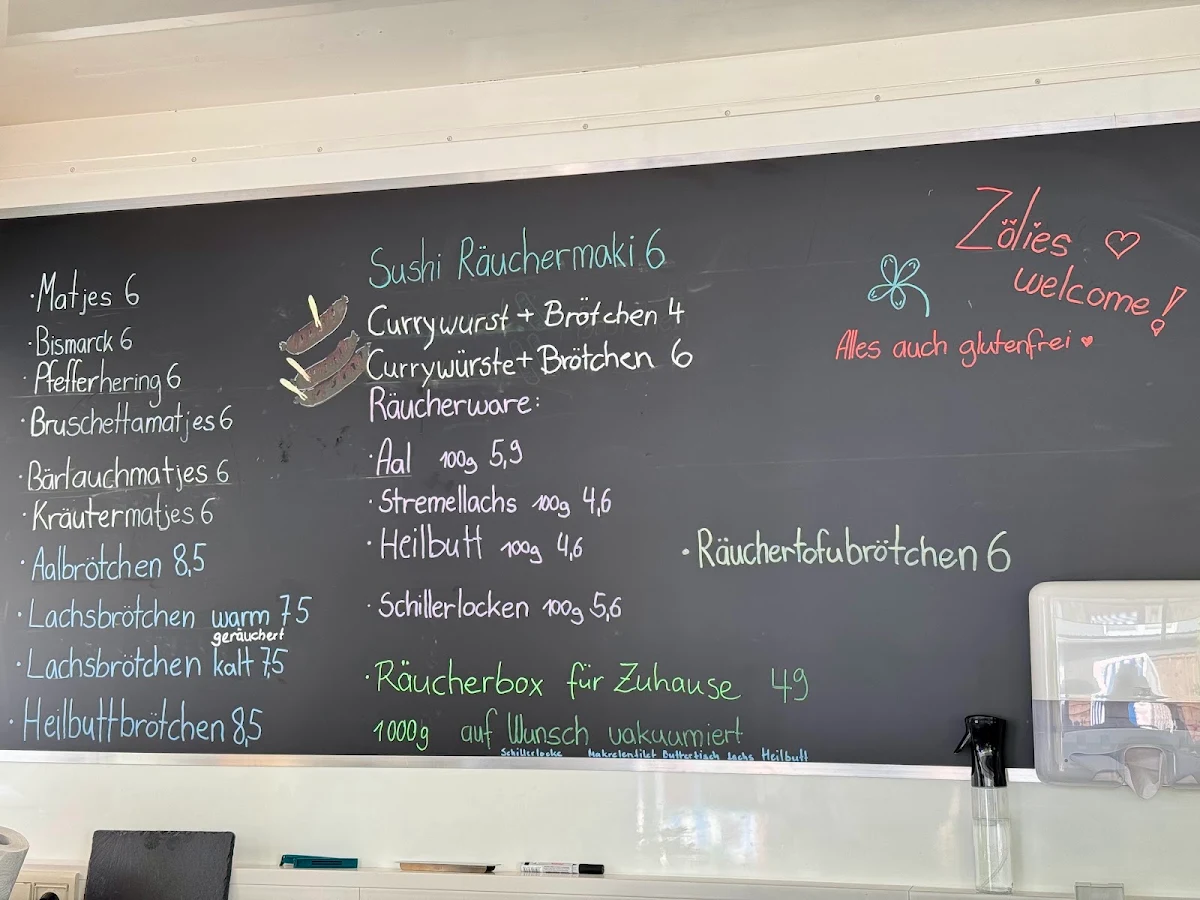 · Matjes 6
· Bismarck 6
· Pfefferhering 6
· Bruschettamatjes 6
· Bärlauchmatjes 6
· Kräutermatjes 6
· Aalbrötchen 8,5
· Lachsbrötchen warm 75
geräuchert
· Lachsbrötchen kalt 7,5
· Heilbuttbrötchen 8,5
Sushi Räuchermaki 6
Currywurst + Brötchen 4
Currywürste + Brötchen 6
Räucherware:
· Aal 100g 5,9
· Stremellachs 100g 4,6
· Heilbutt 100g 4,6
· Schillerlocken 100g 5,6
· Räucherbox für Zuhause 49
1000g auf Wunsch vakuumiert
Lachs Heilbutt
· Räuchertofubrötchen 6
Zölies ♡
welcome!
Alles auch glutenfrei ♥